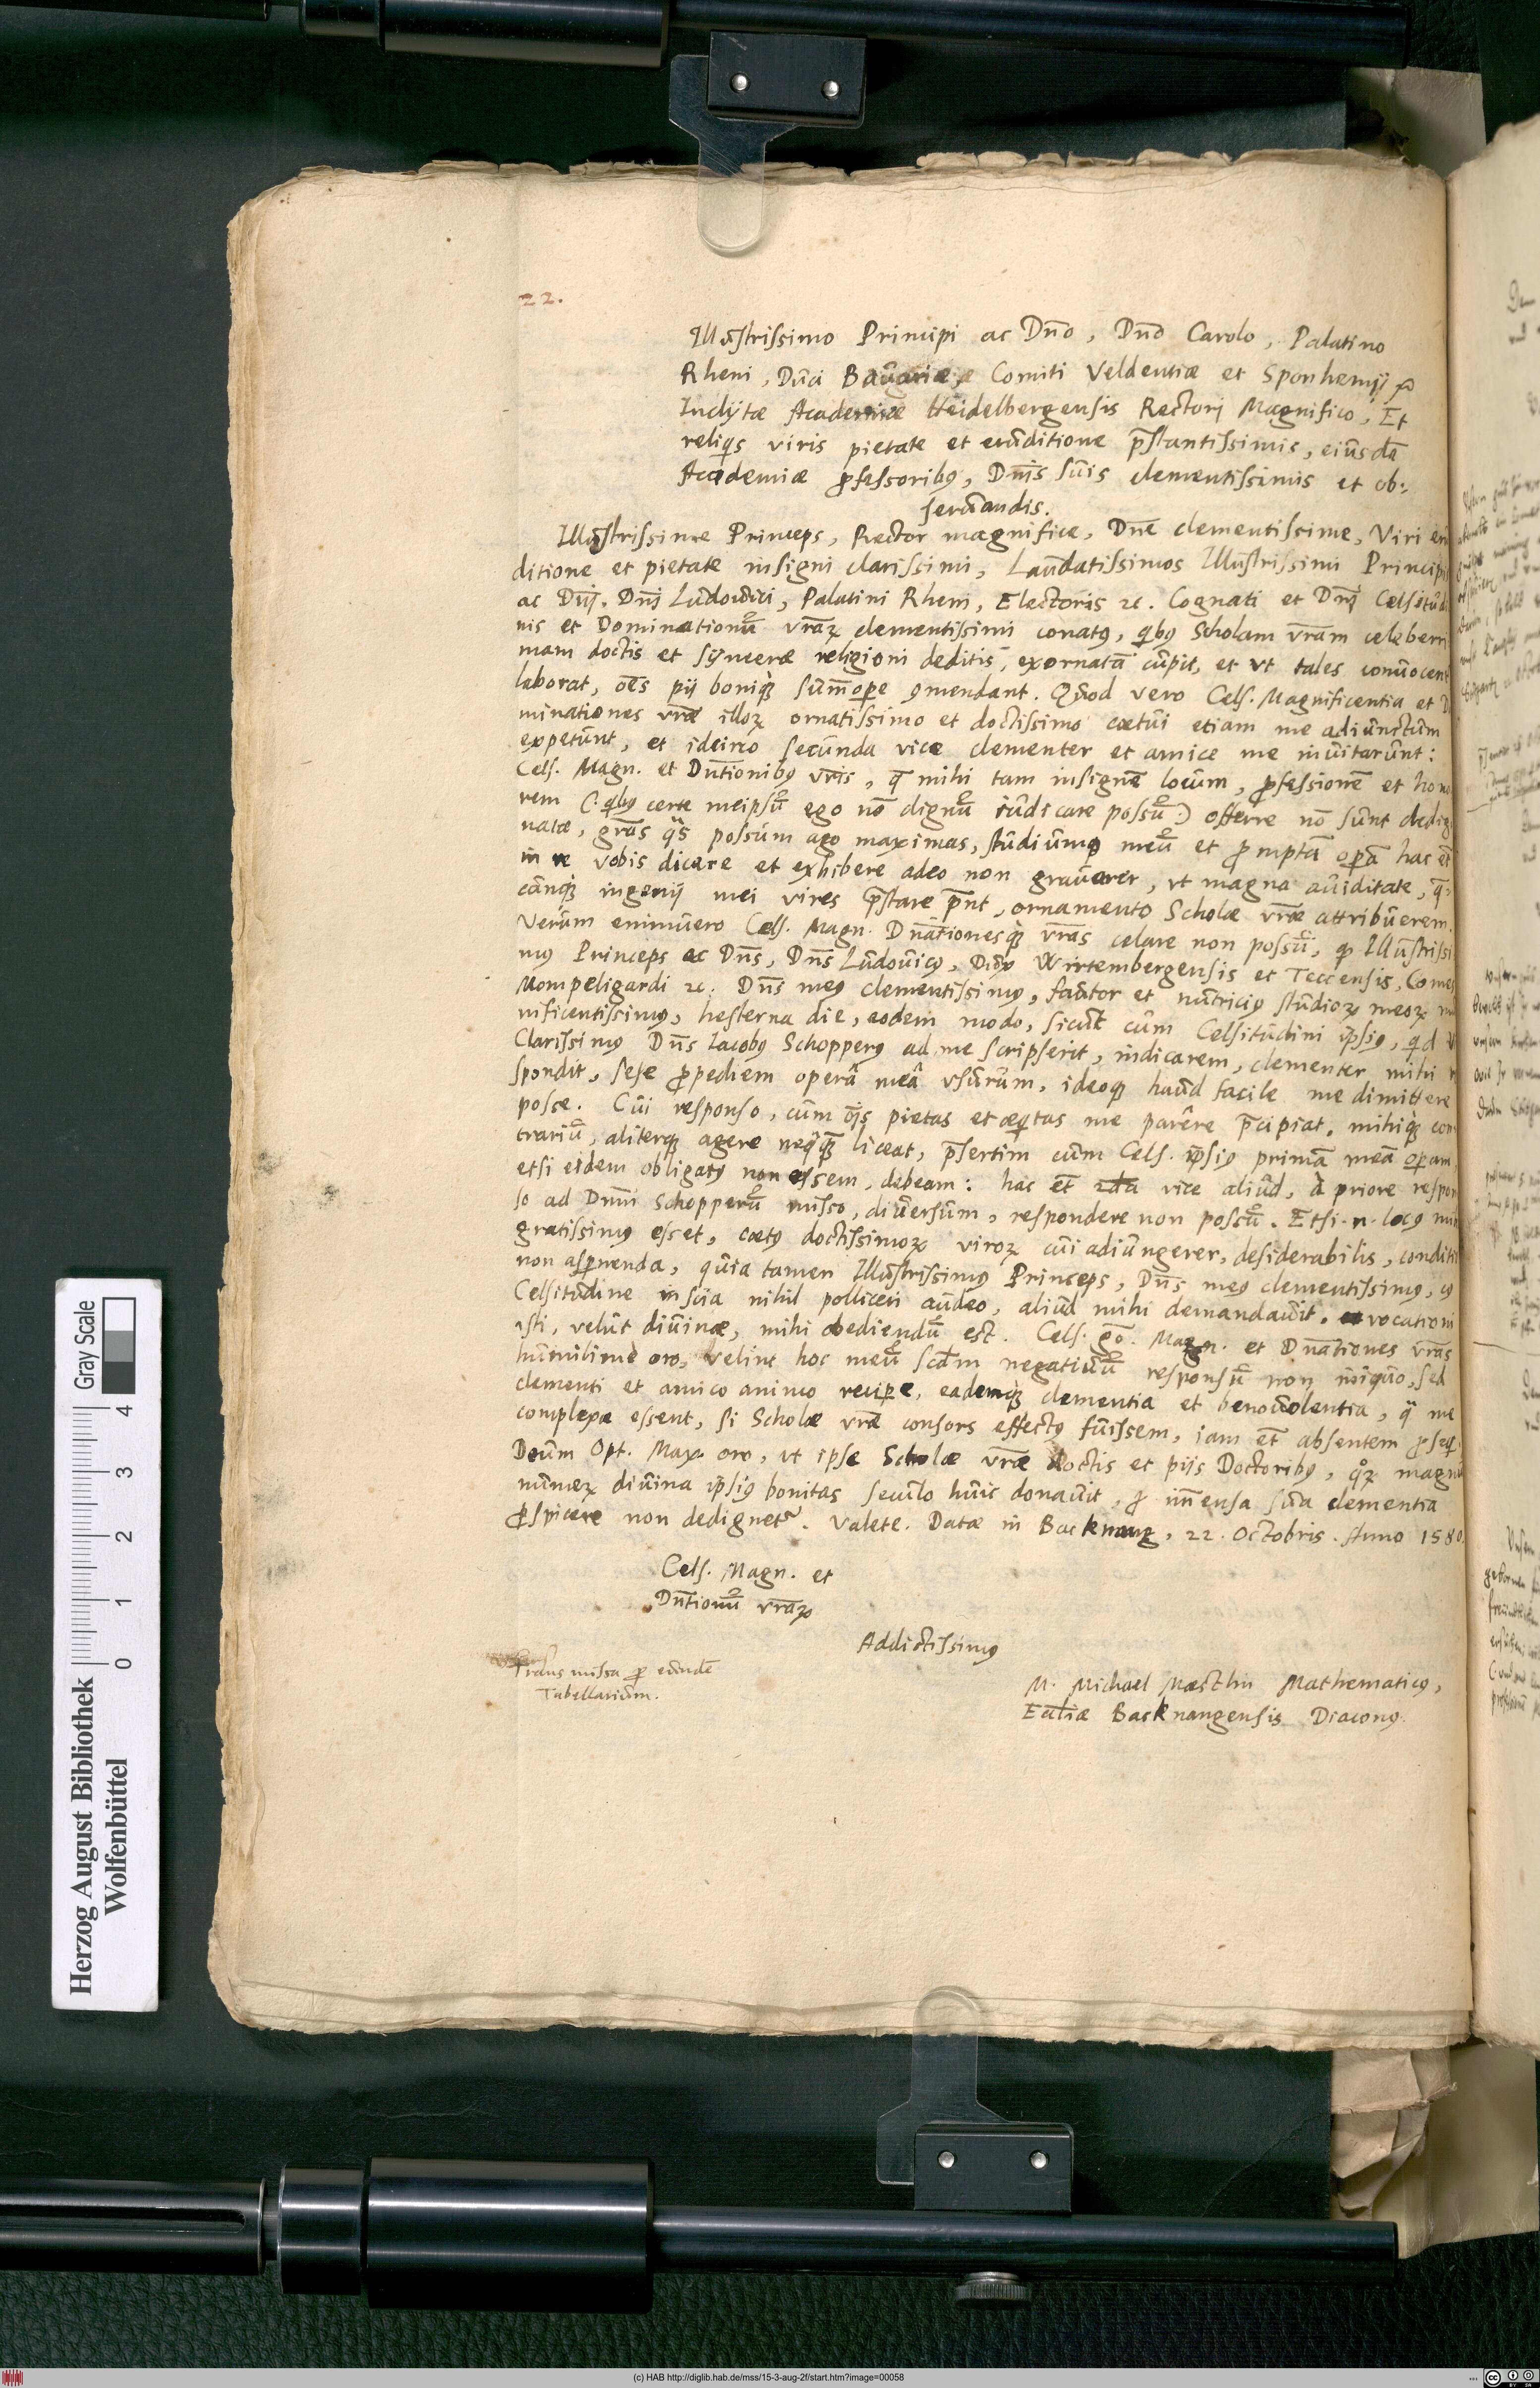 22.
Illustrissimo Principi ac Dño, Dño Carolo, Palatino
Rheni, Duci Bauariæ, Comiti Veldentiæ et Sponhemij
Inclÿtæ Academiæ Heidelbergensis Rectori Magnifico, Et
reliqis viris pietate et eruditione p̄stantissimis, eiusdē
Academiæ ꝓfessoribꝰ, Dñis suis clementissimis et ob-
seruandis.
Illustrissime Princeps, Rector magnifice, Dñe clementissime, Viri eru
ditione et pietate insigni clarissimi, Laudatissimos Illustrissimi Principis
ac Dñj. Dñj Ludouici, Palatini Rheni, Electoris ꝛc. Cognati et Dñj Celsitudi
nis et Dominationū vr̄aꝝ clementissimi conatꝰ, qibꝰ Scholam vr̄am celeberri
mam doctis et sÿnceræ religioni deditis, exornatā cupit, et vt tales conuocent
laborat, oēs pij boniq̀ꝫ sum̄opere ꝯmendant. Quod vero Cels. Magnificentia et D
minationes vr̄æ illoꝝ ornatissimo et doctissimo cœtui etiam me adiunctum
expetunt, et idcirco secunda vice clementer et amice me inuitarunt:
Cels. Magn. et Dn̄tionibꝰ vr̄is, q̄ mihi tam insignē locum, ꝓfessionē et hono
rem (:qibꝰ certe meipsū ego nō dignū iudicare possū:) offerre nō sunt dedig
natæ, gr̄as qas possum ago maximas, studiumqꝫ meū et ꝓmptā operā hac et̄
in re vobis dicare et exhibere adeo non grauarer, vt magna auiditate, q̄-
cunq̀ꝫ ingenij mei vires p̄stare p̄nt, ornamento Scholæ vr̄æ attribuerem.
Verùm enimuero Cels. Magn. Dnātionesq̀ꝫ vr̄as celare non possū, qꝫ Illustrissi
mꝰ Princeps ac Dñs, Dñs Ludouicꝰ, Dux Wirtembergensis et Teccensis, Comes
Mompeligardi ꝛc. Dñs meꝰ clementissimꝰ, fautor et nutriciꝰ studioꝝ meoꝝ mu
nificentissimꝰ, hesterna die, eodem modo, sicut cùm Celsitudini ip̄siꝰ, qid V
Clarissimꝰ Dñs Iacobꝰ Schopperꝰ ad me scripserit, indicarem, clementer mihi re
spondit, sese ꝓpediem operâ meâ vsurum, ideoqꝫ haud facile me dimittere
posse. Cui responso, cùm oīs pietas et æqitas me parêre p̄cipiat, mihiq̀ꝫ con
trariū, aliterqꝫ agere neqaqꝫ liceat, p̄sertim cùm Cels. ip̄siꝰ primā meā operam,
etsi eidem obligatꝰ non essem, debeam: hac et̄ 2da vice aliud, à priore respon
so ad Dnm̄ Schopperū misso, diuersum, respondere non possū. Etsi .n. locꝰ mihi
gratissimꝰ esset, cœtꝰ doctissimoꝝ viroꝝ cui adiungerer, desiderabilis, conditio
non aspernenda, quia tamen Illustrissimꝰ Princeps, Dñs meꝰ clementissimꝰ, cꝰ
Celsitudine inscia nihil polliceri audeo, aliud mihi demandauit, vocationi
isti, velut diuinæ, mihi obediendū est. Cels. gō. Magn. et Dnātiones vr̄as
humilimè oro, velint hoc meū scdm negatiuū responsū non iniquo, sed
clementi et amico animo recipere, eademq̀ꝫ clementia et beneuolentia, qa me
complexæ essent, si Scholæ vr̄æ consors effectꝰ fuissem, iam et̄ absentem ꝓseqi.
Deum Opt. Max. oro, vt ipse Scholæ vr̄æ doctis et pijs Doctoribꝰ, qoꝝ magnū
numeꝝ diuina ip̄siꝰ bonitas seculo huic donauit, ꝓ im̄ensa sua clementia
ꝓspicere non dedignetr. Valete. Datæ in Backnang, 22. Octobris. Anno 1580.
Cels. Magn. et
Dn̄tionū vr̄aꝝ
Addictissimꝰ
Transmissa ꝓ eundē
Tabellarium.
M. Michael Mæstlin Mathematicꝰ,
Eccliæ Backnangensis Diaconꝰ.
Herzog August Bibliothek
Wolfenbüttel
Gray Scale
0 1 2 3 4
(c) HAB http://diglib.hab.de/mss/15-3-aug-2f/start.htm?image=00058